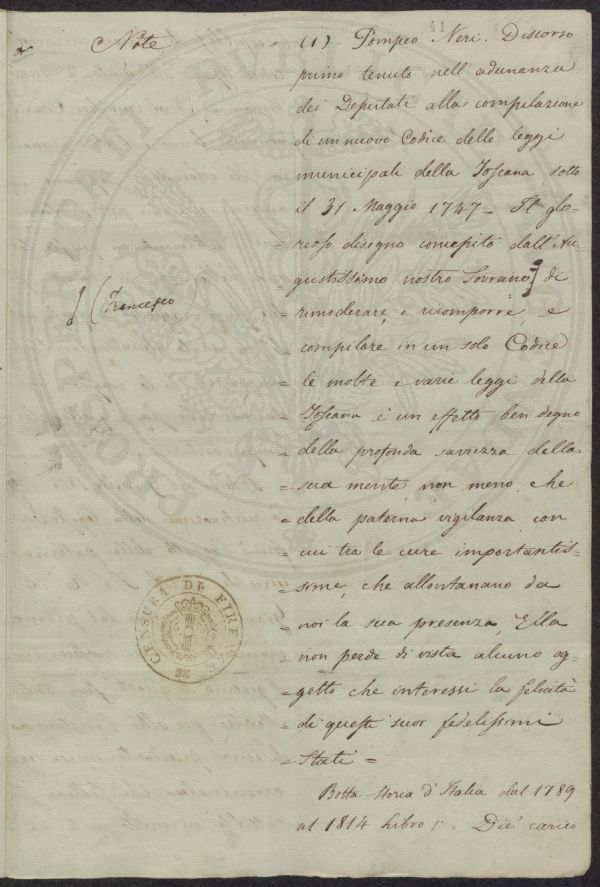 41
Note
(1) Pompeo Neri. Discorso
primo tenuto nell'adunanza
dei Deputati alla compilazione
di un nuovo Codice delle leggi
municipali della Toscana sotto
il 31 Maggio 1747 - Il glo-
= rioso disegno concepito dall'Au-
= gustissimo nostro Sovrano di
(Francesco)
= rimoderare, e ricomporre, e
= compilare in un solo Codice
= le molte e varie leggi della
= Toscana è un effetto ben degno
= della profonda saviezza della
= sua mente, non meno che
= della paterna vigilanza con
= cui tra le cure importantis-
= sime, che allontanano da
= noi la sua presenza, Ella
= non perde di vista alcuno og-
= getto che interessi la felicità
= di questi suoi fedelissimi
= Stati =
CENSURA DI FIRENZE
Botta Storia d'Italia dal 1789
al 1814 Libro 1 = Diè carico